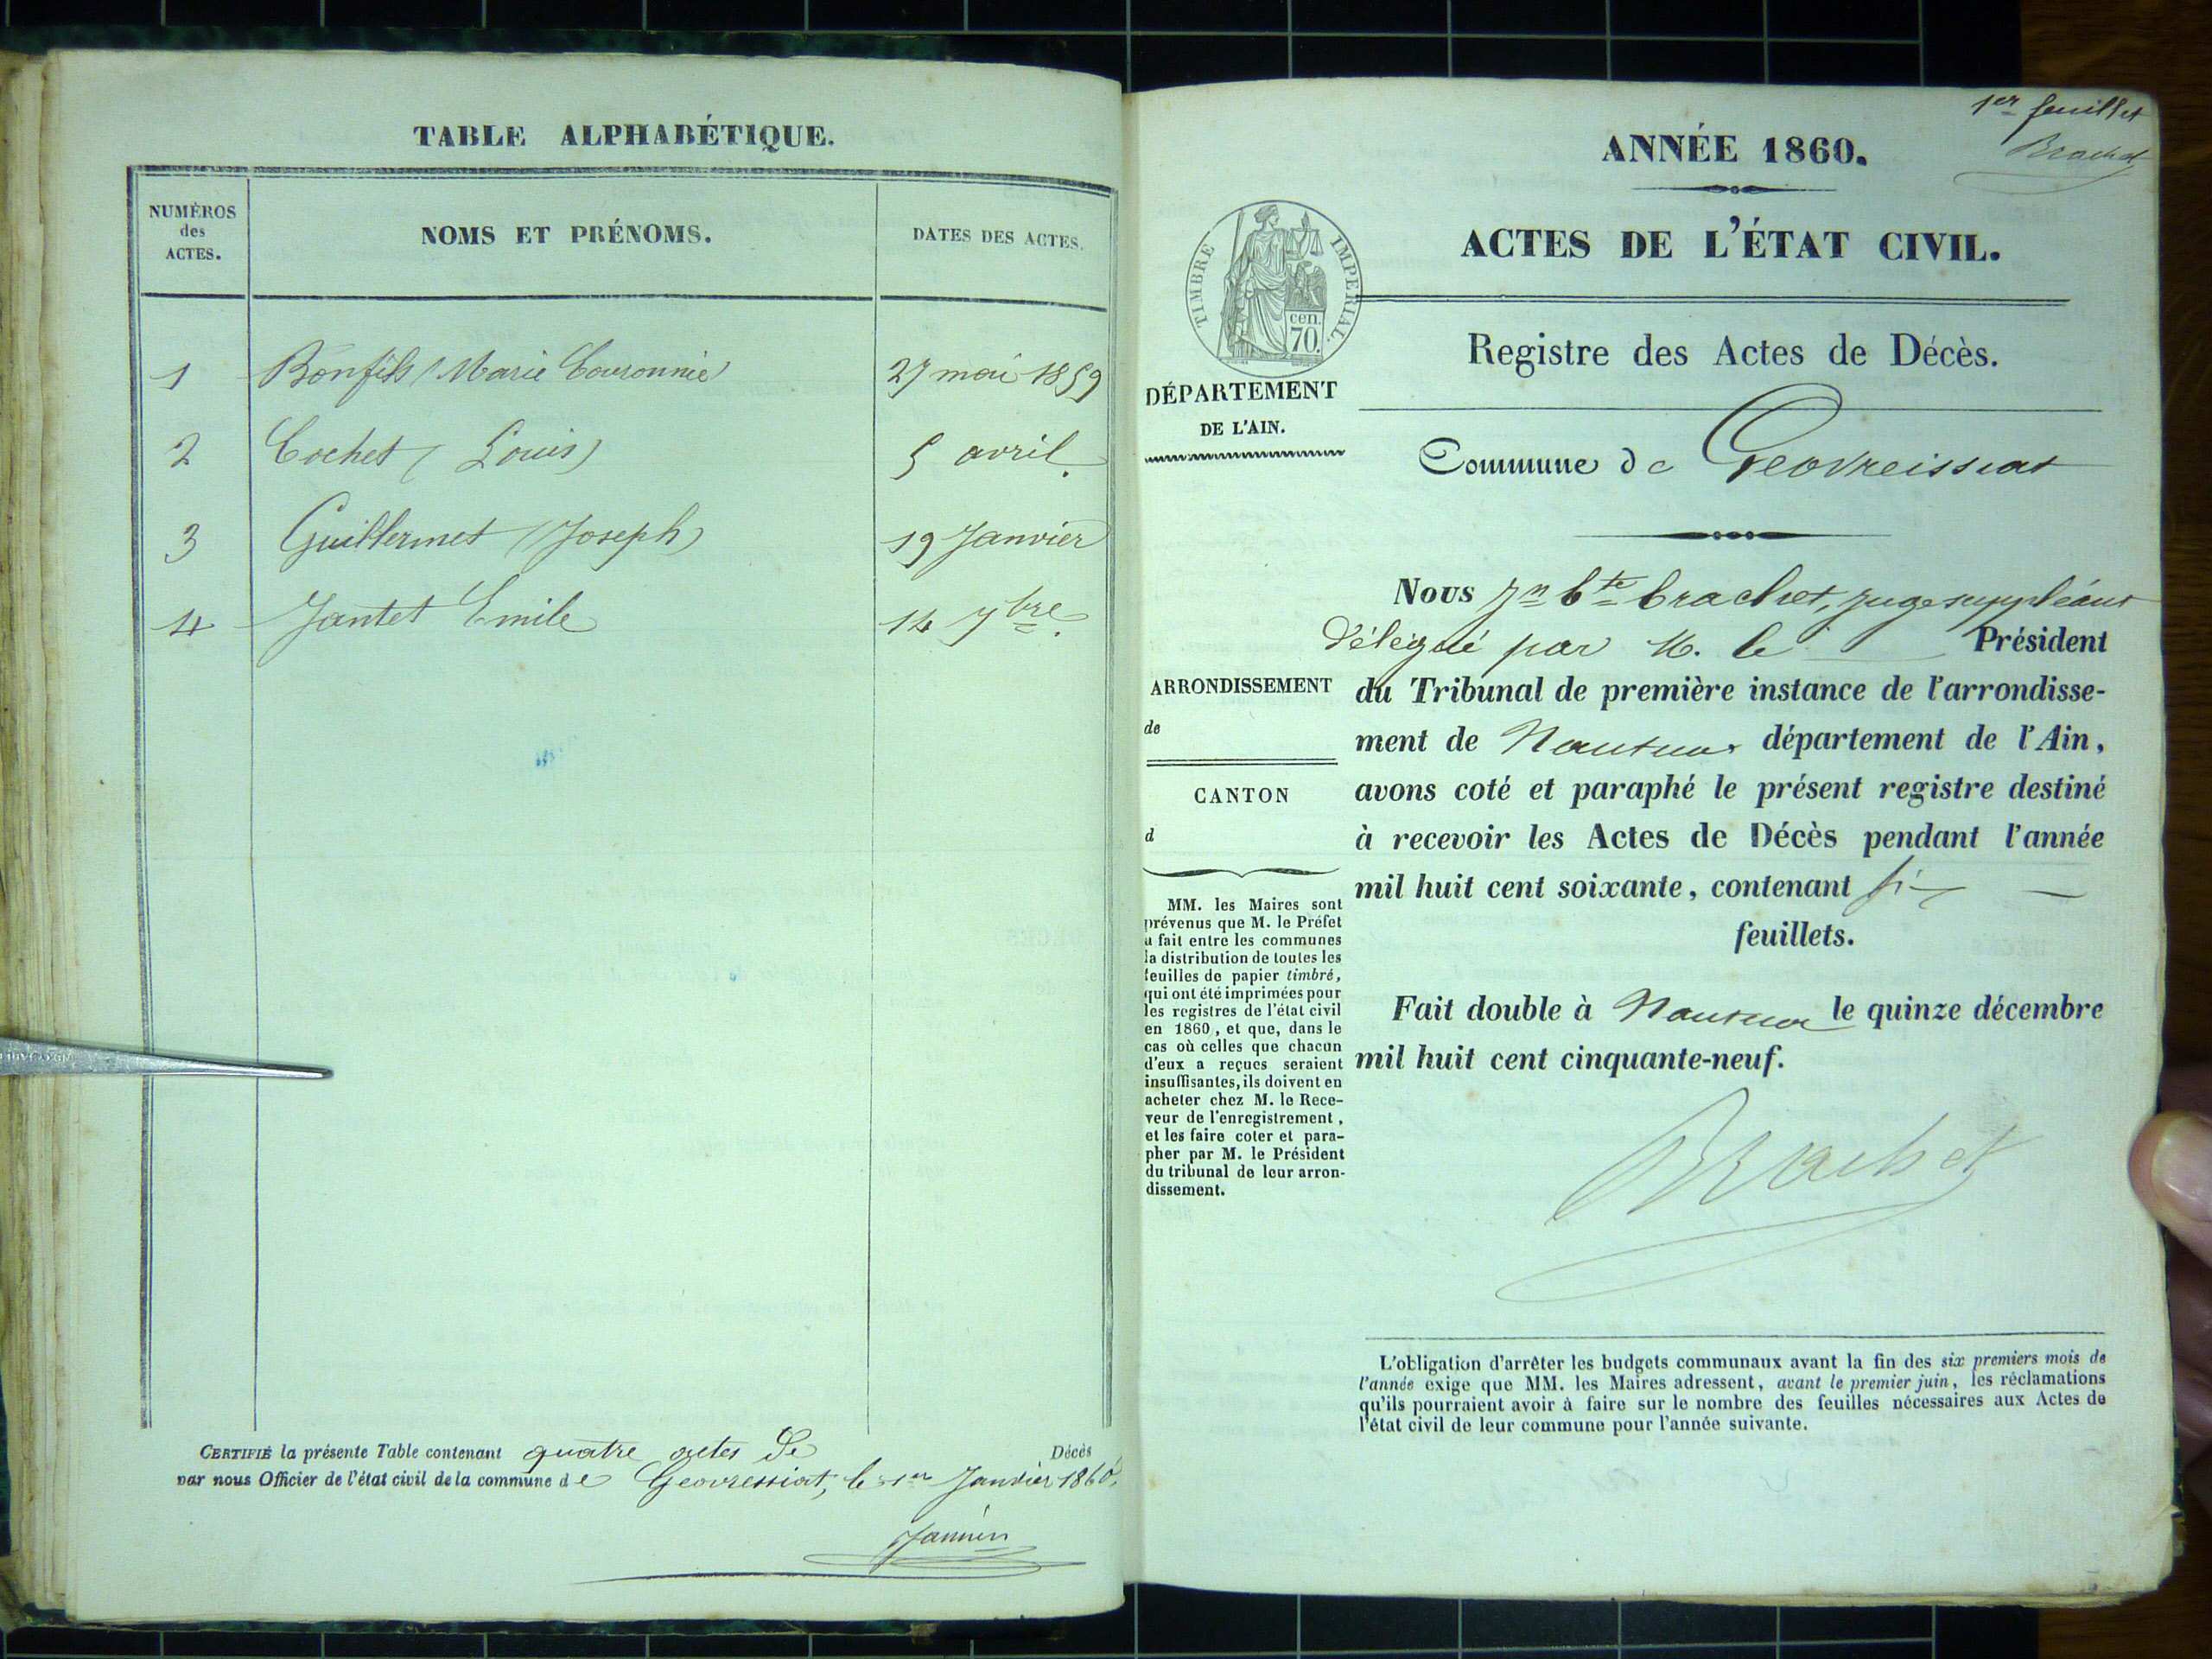 TABLE ALPHABÉTIQUE.
NUMÉROS
des
ACTES.
NOMS ET PRÉNOMS.
DATES DES ACTES.
1 Bonfils (Marie 27 mai 1859
2 Cochet (Louis) 5 avril.
3 Guillermet (Joseph) 19 Janvier
4 Jantet Emile 14 7bre.
CERTIFIÉ la présente Table contenant quatre actes de Décès
par nous Officier de l'état civil de la commune de Geovressiat, le 1er Janvier 1860.
1er feuillet
Brachet
ANNÉE 1860.
ACTES DE L'ÉTAT CIVIL.
TIMBRE IMPERIAL.
cen.
70.
Registre des Actes de Décès.
DÉPARTEMENT
DE L'AIN.
Commune de Geovreissiat
Nous Jn Bte Brachet, juge suppléant
délégué par M. le Président
du Tribunal de première instance de l'arrondisse-
ment de Nantua département de l'Ain,
avons coté et paraphé le présent registre destiné
à recevoir les Actes de Décès pendant l'année
mil huit cent soixante, contenant six
feuillets.
Fait double à Nantua le quinze décembre
mil huit cent cinquante-neuf.
Brachet
ARRONDISSEMENT
de
CANTON
d
MM. les Maires sont
prévenus que M. le Préfet
a fait entre les communes
la distribution de toutes les
feuilles de papier timbré,
qui ont été imprimées pour
les registres de l'état civil
en 1860, et que, dans le
cas où celles que chacun
d'eux a reçues seraient
insuffisantes, ils doivent en
acheter chez M. le Rece-
veur de l'enregistrement,
et les faire coter et para-
pher par M. le Président
du tribunal de leur arron-
dissement.
L'obligation d'arrêter les budgets communaux avant la fin des six premiers mois de
l'année exige que MM. les Maires adressent, avant le premier juin, les réclamations
qu'ils pourraient avoir à faire sur le nombre des feuilles nécessaires aux Actes de
l'état civil de leur commune pour l'année suivante.